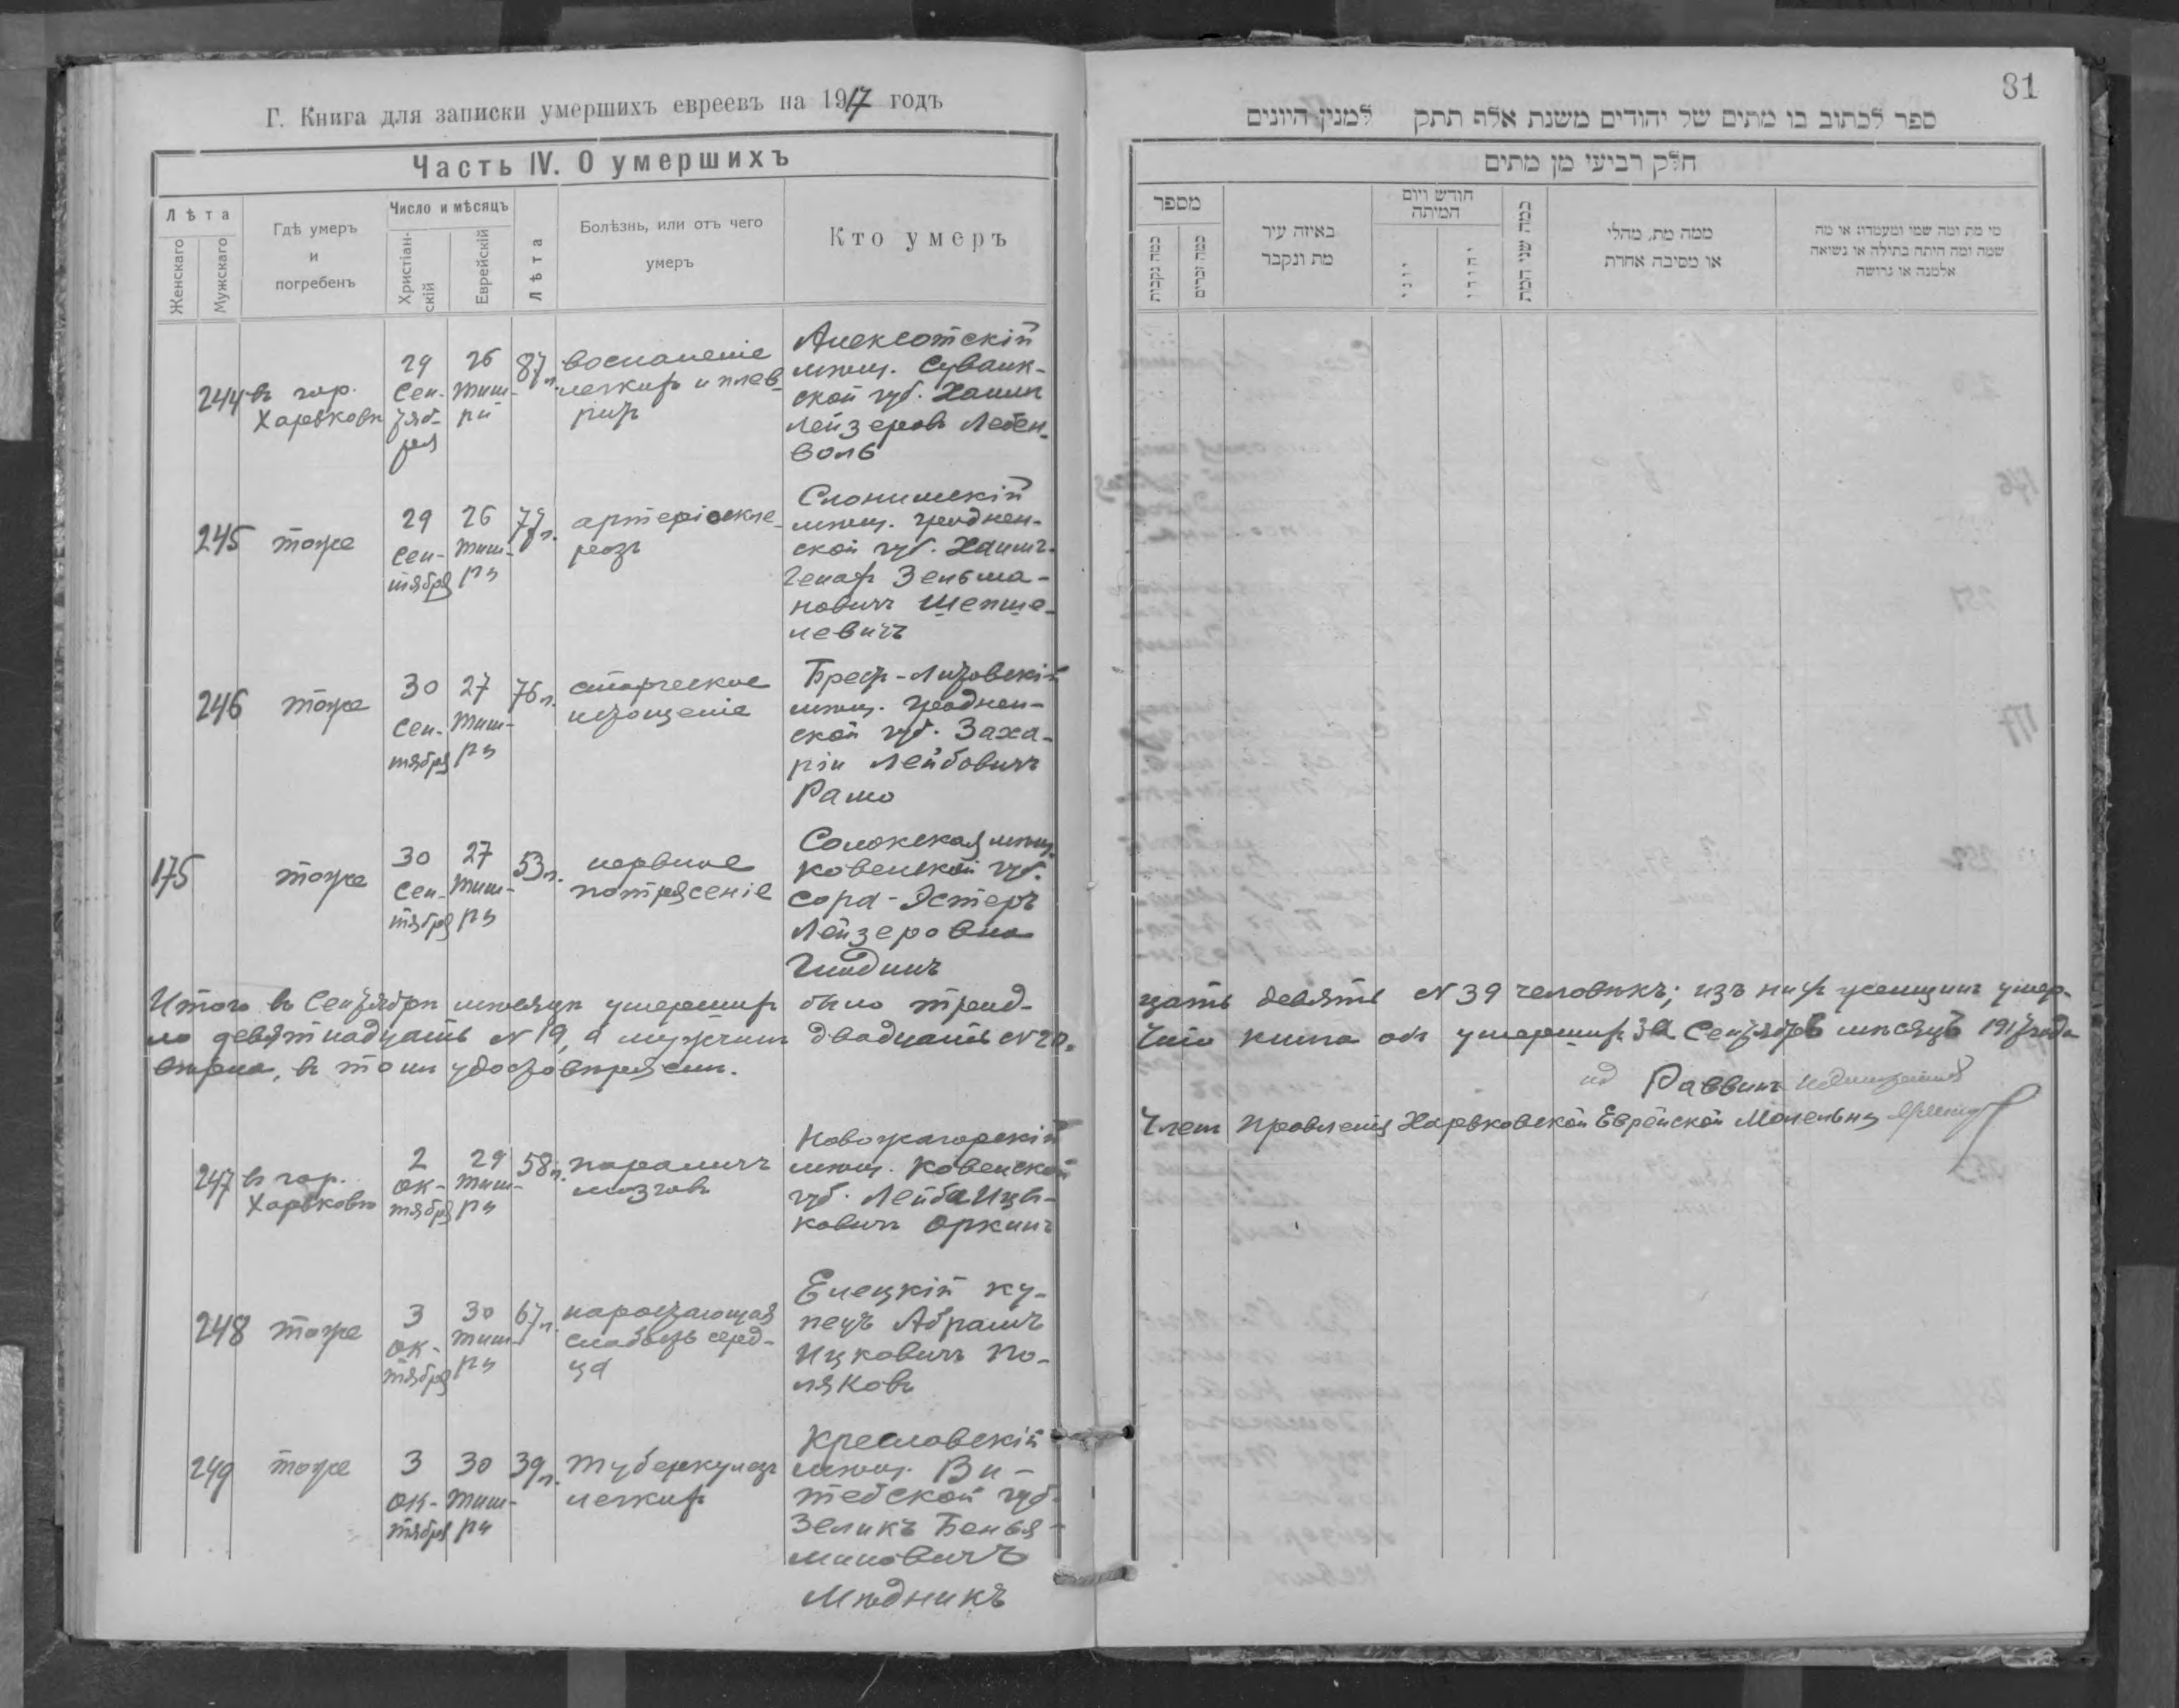 Г. Книга для записки умершихъ евреевъ на 1917 годъ
Часть IV. О умершихъ
Лѣта
Женскаго
Мужскаго
Гдѣ умеръ
и
погребенъ
Число и мѣсяцъ
Христіан-
скій
Еврейскій
Лѣта
Болѣзнь, или отъ чего
умеръ
Кто умеръ
244
въ гор.
Харьковѣ
29
Сен-
тяб-
ря
26
тиш-
ри
87 л.
воспаленіе
легкихъ и плев-
ритъ
Алексотскій
мѣщ. Сувалк-
ской губ. Хаимъ
Лейзеровъ Лебен-
воль
245
тоже
29
Сен-
тября
26
тиш-
ри
77 л.
артеріоскле-
розъ
Слонимскій
мѣщ. Гроднен-
ской губ. Хаимъ-
Зельма-
новичъ Шепше-
левичъ
246
тоже
30
Сен-
тября
27
тиш-
ри
76 л.
старческое
истощеніе
Брест-Литовскій
мѣщ. Гроднен-
ской губ. Заха-
рій Лейбовичъ
Рашо
175
тоже
30
Сен-
тября
27
тиш-
ри
53 л.
нервное
потрясеніе
Солокская мѣщ.
Ковенской губ.
Сора-Эстеръ
Лейзеровна
Итого въ Сентябрѣ мѣсяцѣ умершихъ было тридцать
девять № 39 человѣкъ; изъ нихъ женщинъ умер-
ло девятнадцать № 19, а мужчинъ двадцать № 20.
Что книга объ умершихъ за Сентябрь мѣсяцъ 1917 года
вѣрна, въ томъ удостовѣряемъ.
ид Раввинъ
Членъ Правленія Харьковской Еврейской Молельни
247
въ гор.
Харьковѣ
2
ок-
тября
29
тиш-
ри
58 л.
параличъ
мозговъ
Новожагорскій
мѣщ. Ковенской
губ. Лейба Ицъ-
ковичъ Оркинъ
248
тоже
3
ок-
тября
30
тиш-
ри
67 л.
наростающая
слабость серд-
ца
Елецкій ку-
пецъ Абрамъ
Ицковичъ По-
ляковъ
249
тоже
3
ок-
тября
30
тиш-
ри
39 л.
туберкулезъ
легкихъ
Креславскій
мѣщ. Ви-
тебской губ.
Зеликъ Бенья-
миновичъ
Мѣдникъ
81
ספר לכתוב בו מתים של יהודים משנת אלף תתק למנין היונים
חלק רביעי מן מתים
מספר
כמה נקבות
כמה זכרים
באיזה עיר
מת ונקבר
חודש ויום
המיתה
יוני
יהודי
כמה שני המת
ממה מת, מחלי
או מסיבה אחרת
מי מת ומה שמו ומעמדו: או מה
שמה ומה היתה בתולה או נשואה
אלמנה או גרושה